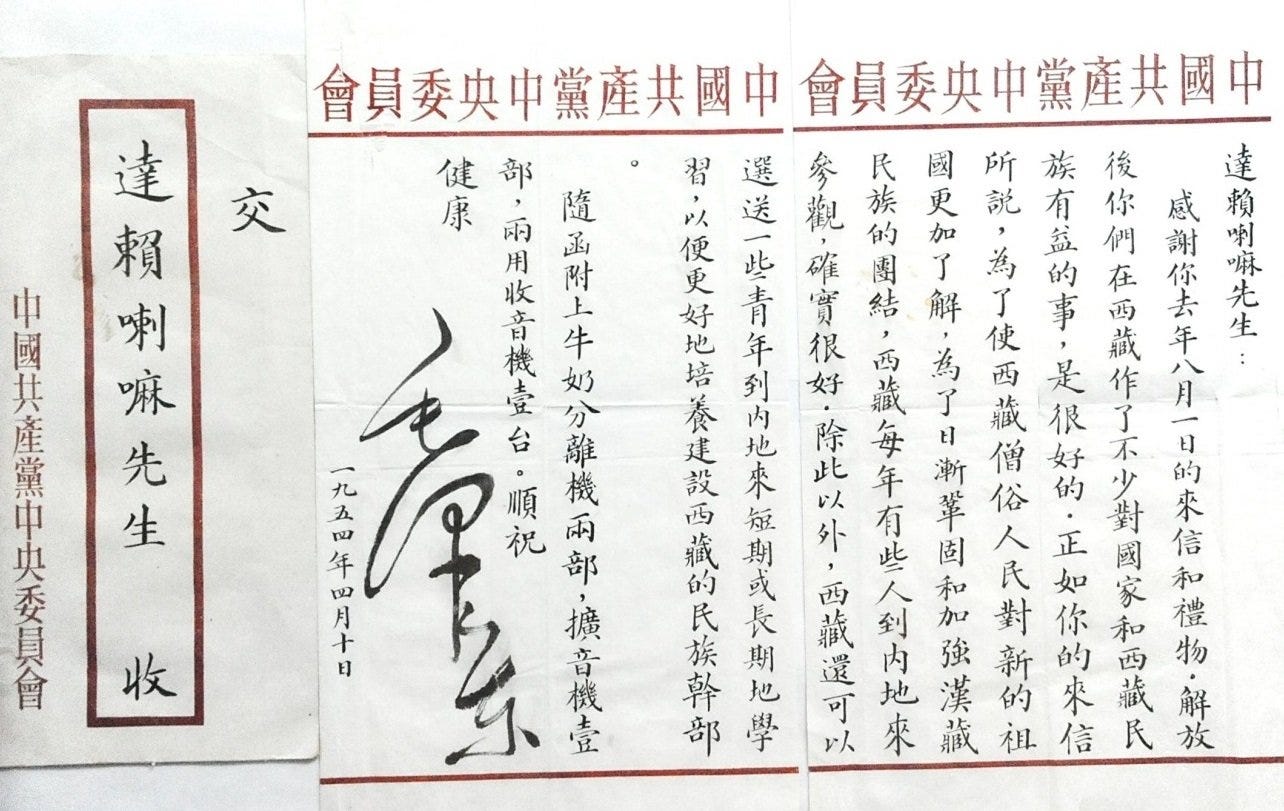 中國共產黨中央委員會
達賴喇嘛先生：
感謝你去年八月一日的來信和禮物．解放
後你們在西藏作了不少對國家和西藏民
族有益的事，是很好的．正如你的來信
所說，為了使西藏僧俗人民對新的祖
國更加了解，為了日漸鞏固和加強漢藏
民族的團結，西藏每年有些人到內地來
參觀，確實很好．除此以外，西藏還可以
中國共產黨中央委員會
選送一些青年到內地來短期或長期地學
習，以便更好地培養建設西藏的民族幹部
。
隨函附上牛奶分離機兩部，擴音機壹
部，兩用收音機壹台。順祝
健康
毛澤東
一九五四年四月十日
交
達賴喇嘛先生 收
中國共產黨中央委員會